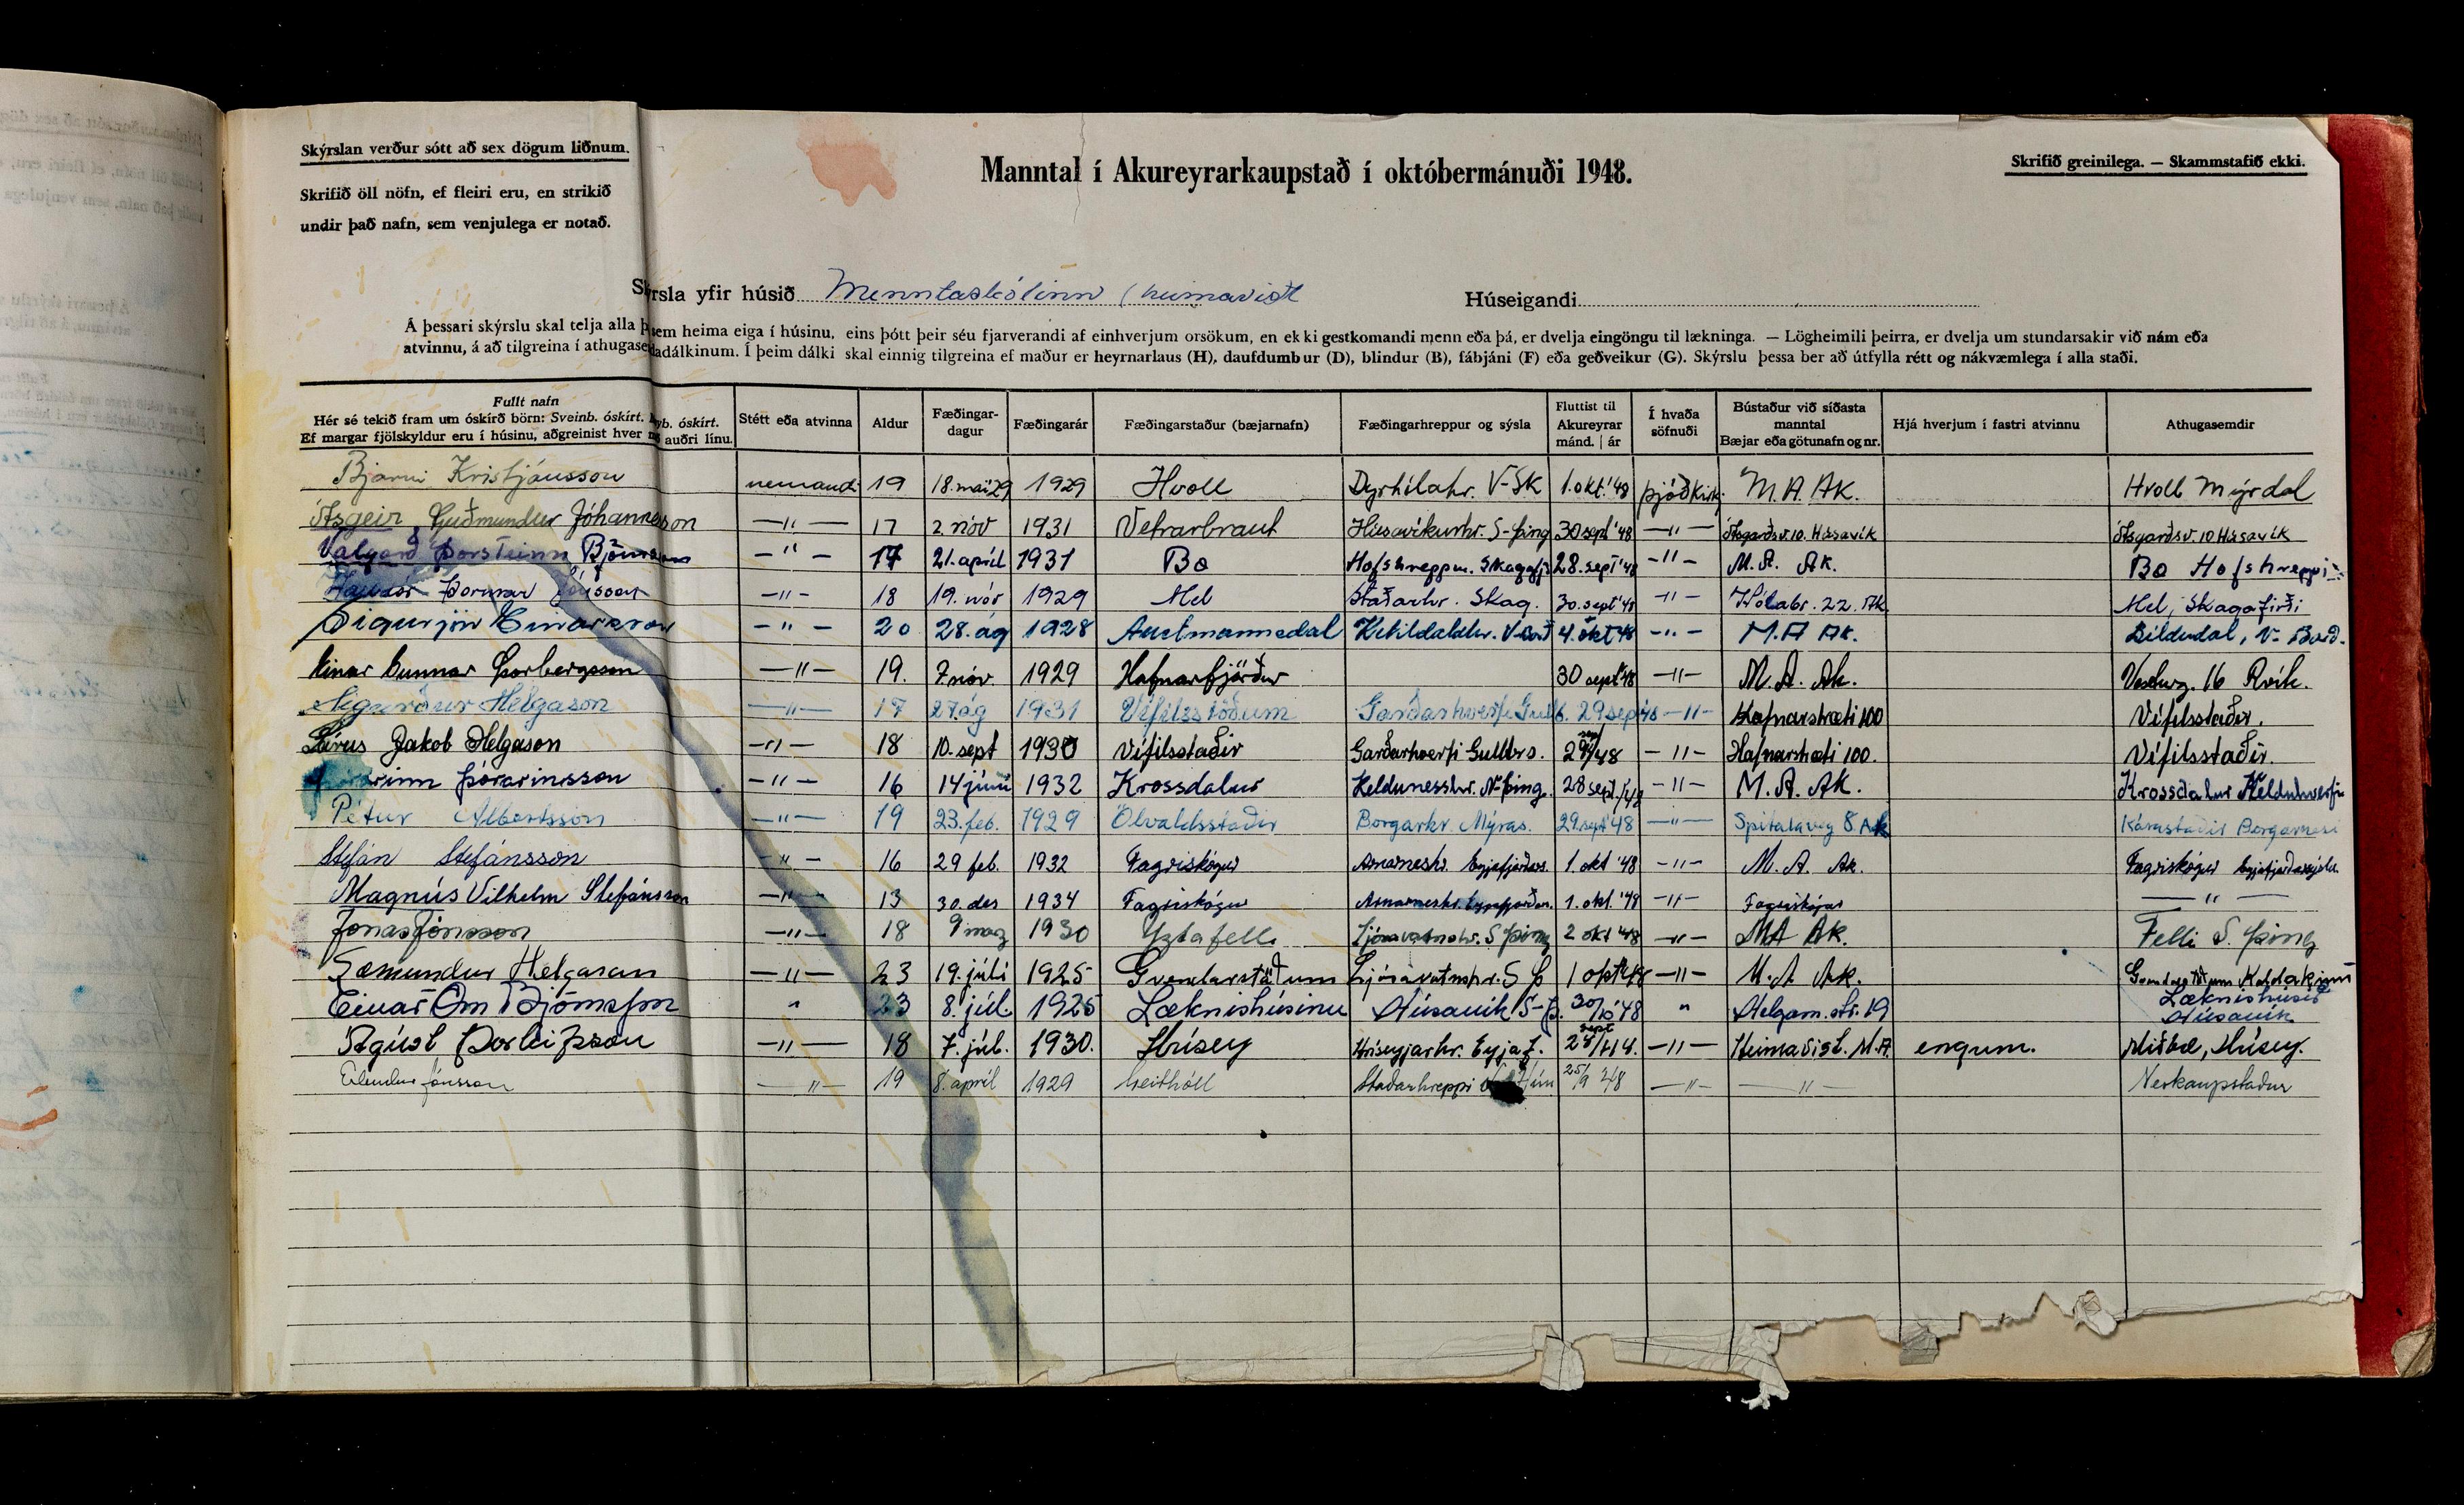 Skýrslan verður sótt að sex dögum liðnum.
Skrifið öll nöfn, ef fleiri eru, en strikið
undir það nafn, sem venjulega er notað.
Manntal í Akureyrarkaupstað í októbermánuði 1948.
Skrifið greinilega. — Skammstafið ekki.
Skýrsla yfir húsið Menntaskólinn (heimavist Húseigandi
Á þessari skýrslu skal telja alla þ sem heima eiga í húsinu, eins þótt þeir séu fjarverandi af einhverjum orsökum, en ekki gestkomandi menn eða þá, er dvelja eingöngu til lækninga. — Lögheimili þeirra, er dvelja um stundarsakir við nám eða
atvinnu, á að tilgreina í athugasemdadálkinum. Í þeim dálki skal einnig tilgreina ef maður er heyrnarlaus (H), daufdumbur (D), blindur (B), fábjáni (F) eða geðveikur (G). Skýrslu þessa ber að útfylla rétt og nákvæmlega í alla staði.
Fullt nafn
Hér sé tekið fram um óskírð börn: Sveinb. óskírt. yb. óskírt.
Ef margar fjölskyldur eru í húsinu, aðgreinist hver auðri línu.
Stétt eða atvinna
Aldur
Fæðingar-
dagur
Fæðingarár
Fæðingarstaður (bæjarnafn)
Fæðingarhreppur og sýsla
Fluttist til
Akureyrar
mánd. | ár
Í hvaða
söfnuði
Bústaður við síðasta
manntal
Bæjar eða götunafn og nr.
Hjá hverjum í fastri atvinnu
Athugasemdir
Bjarni Kristjánsson nemandi 19 18. maí 29 1929 Hvoll Dyrhólahr. V-Sk 1. okt. '48 þjóðkirk. M.A. Ak. Hvoll Mýrdal
Ásgeir Guðmundur Jóhannesson —"— 17 2. nóv 1931 Vetrarbraut Húsavíkurhr. S-Þing 30 sept '48 —"— Ásgarðsv. 10. Húsavík Ásgarðsv. 10 Húsavík
Valgarð Þorsteinn Björnsson —"— 17 21. apríl 1931 Bæ Hofshreppur. Skagafj. 28. sept '48 —"— M.A. Ak. Bæ Hofshreppi
Halldór Þormar Jónsson —"— 18 19. nóv 1929 Mel Staðarhr. Skag. 30. sept '48 —"— Hólabr. 22. Ak Mel, Skagafirði
Sigurjón Einarsson —"— 20 28. ág 1928 Austmannsdal Ketildalahr. V-Barð 4. okt 48 —"— M.A Ak. Bíldudal, V-Barð.
Einar Gunnar Þorbergsson —"— 19. 7. nóv. 1929 Hafnarfjörður 30 sept '48 —"— M.A. Ak. Vesturg. 16 Rvík.
Sigurður Helgason —"— 17 27 ág 1931 Vífilsstöðum Garðarhverfi Gullb. 29 sep '48 —"— Hafnarstræti 100 Vífilsstaðir.
Lárus Jakob Helgason —"— 18 10. sept 1930 Vífilsstaðir Garðarhverfi Gullbrs. 29/48 —"— Hafnarstræti 100. Vífilsstaðir.
Þórarinn Þórarinsson —"— 16 14 júní 1932 Krossdalur Keldunesshr. N-Þing. 28 sept. /48 —"— M.A. Ak. Krossdalur Kelduhverfi
Pétur Albertsson —"— 19 23. feb. 1929 Ölvaldsstaðir Borgarhr. Mýras. 29. sept '48 —"— Spítalaveg 8. Ak Kárastaðir Borgarnesi
Stefán Stefánsson —"— 16 29 feb. 1932 Fagriskógur Arnarneshr. Eyjafjarðars. 1. okt '48 —"— M.A. Ak. Fagriskógur Eyjafjarðarsýslu.
Magnús Vilhelm Stefánsson —"— 13 30. des 1934 Fagriskógur Arnarneshr. Eyjafjarðar. 1. okt. '48 —"— Fagriskógur —"—
Jónas Jónsson —"— 18 9 marz 1930 Yztafelli Ljósavatnshr. S Þing 2 okt '48 —"— MA Ak. Felli S. Þing
Sæmundur Helgason —"— 23 19. júlí 1925 Gvendarstöðum Ljósavatnshr. S Þ 1 okt '48 —"— M.A Ak. Gvendarstöðum Kaldakinn
Einar Örn Björnsson " 23 8. júl. 1925 Læknishúsinu Húsavík S-Þ. 30/10 '48 " Helgam.str. 19 Læknishúsið
Húsavík
Ágúst Þorleifsson —"— 18 7. júl. 1930. Hrísey Hríseyjarhr. Eyjaf. sept —"— Heimavist. M.A. engum. Miðbæ, Hrísey.
Erlendur Jónsson —"— 19 8. apríl 1929 Geithóll Staðarhreppi 25/9 '48 —"— —"— Neskaupstaður